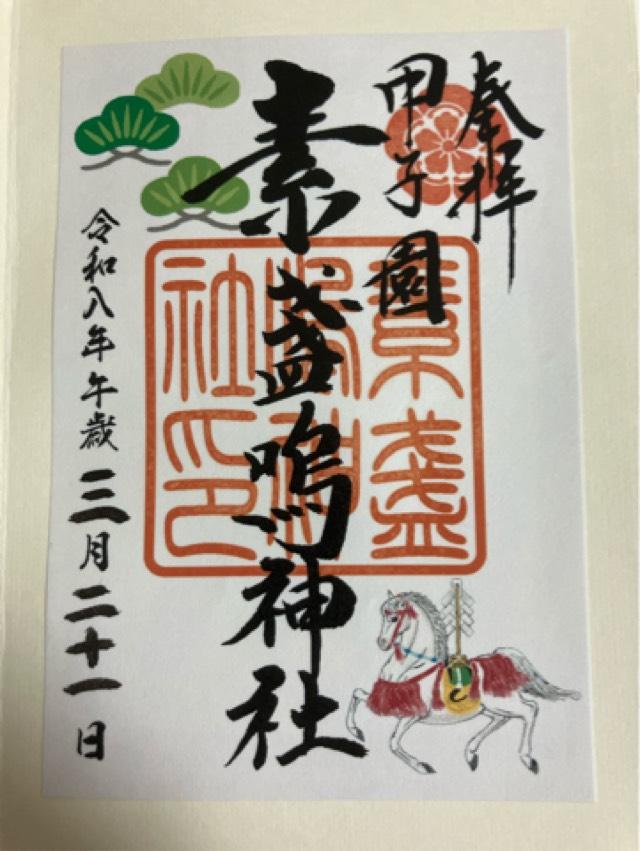 奉拝
甲子園
素盞嗚神社
素盞
嗚神
社印
令和八年午歳三月二十一日